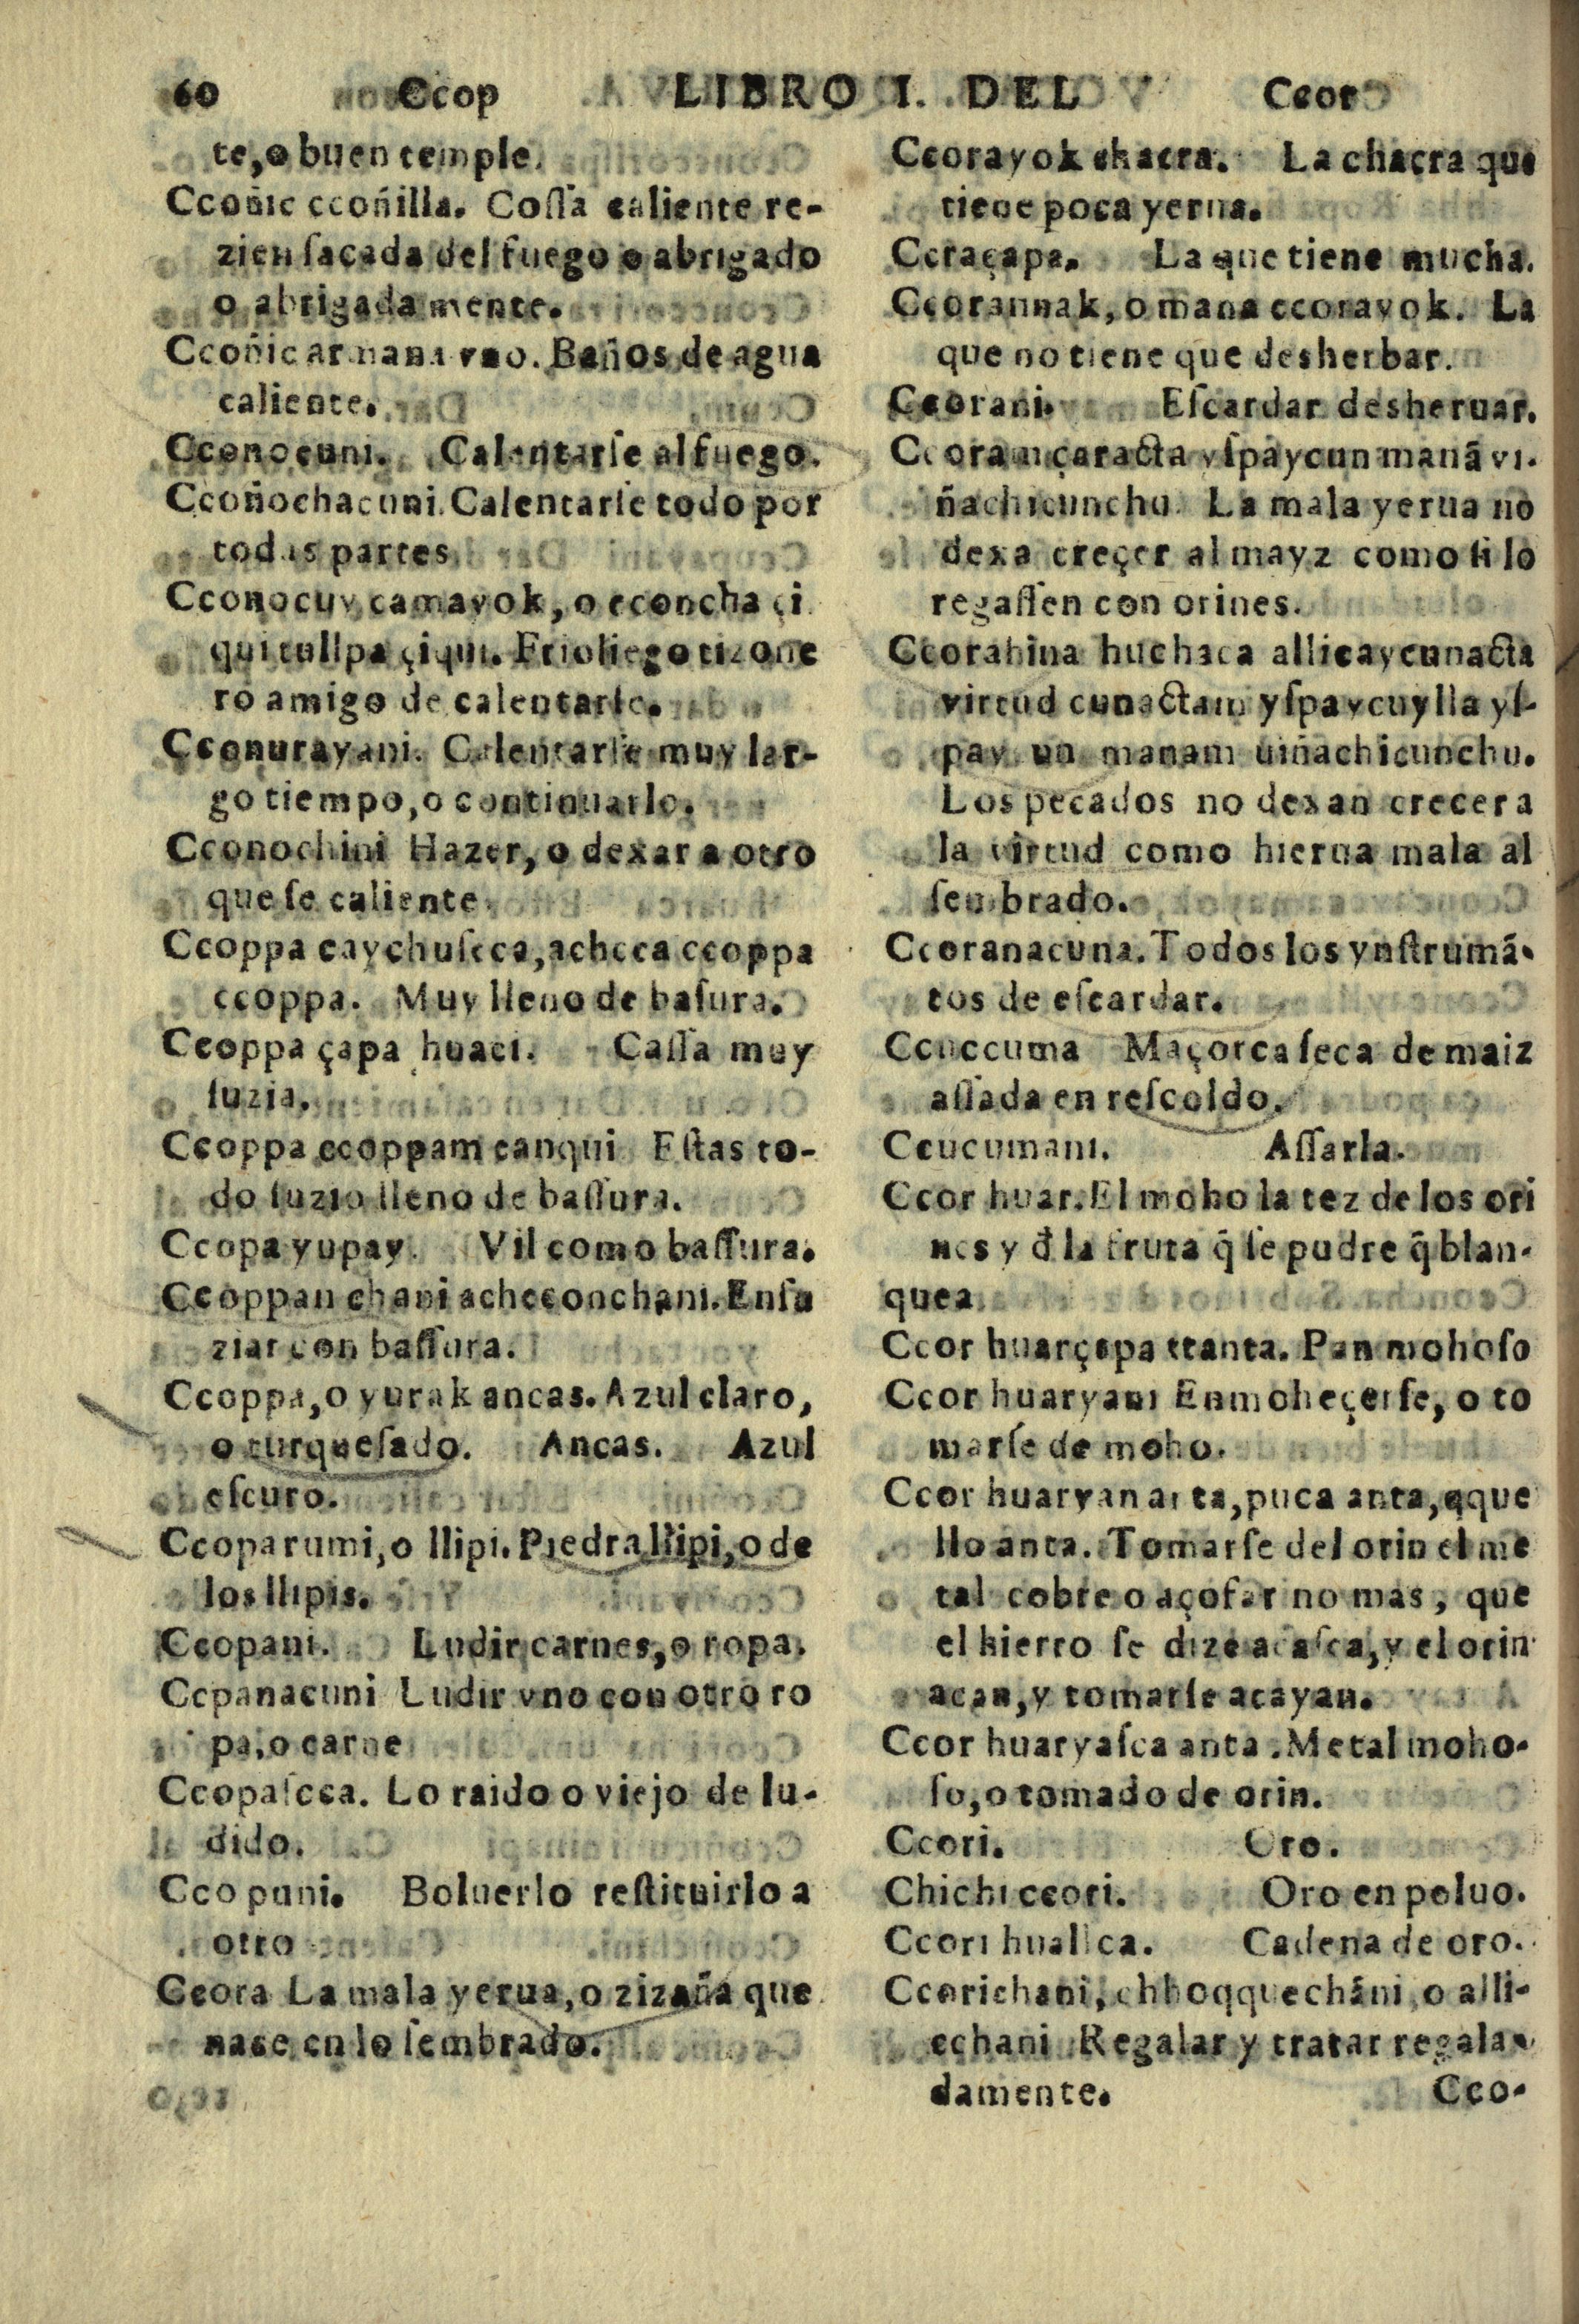 60 Ccop LIBRO I. DEL Ccor
te, o buen temple.
Ccoñic ccoñilla. Coſſa caliente re-
zien ſacada del fuego o abrigado
o abrigada mente.
Ccoñic armana vno. Baños de agua
caliente.
Cconocuni. Calentarſe al fuego.
Ccoñochacuni. Calentarſe todo por
todas partes
Cconocuy camayok, o cconcha çi
qui tullpa çiqui. Frioliego tizone
ro amigo de calentarſe.
Cconurayani. Calentarſe muy lar-
go tiempo, o continuarlo.
Cconochini Hazer, o dexar a otro
que ſe caliente.
Ccoppa caychuſcca, achcca ccoppa
ccoppa. Muy lleno de baſura.
Ccoppa çapa huaci. Caſſa muy
ſuzia.
Ccoppa ccoppam canqui Eſtas to-
do ſuzio lleno de baſſura.
Ccopa yupay. Vil como baſſura.
Ccoppan chani achcconchani. Enſu
ziar con baſſura.
Ccoppa, o yurak ancas. Azul claro,
o turqueſado. Ancas. Azul
eſcuro.
Ccopa rumi, o llipi. Piedra llipi, o de
los llipis.
Ccopani. Ludir carnes, o ropa.
Ccpanacuni Ludir vno con otro ro
pa, o carne
Ccopaſcca. Lo raido o viejo de lu-
dido.
Cco puni. Boluerlo reſtituirlo a
otro
Ccora La mala yerua, o zizaña que
nace en lo ſembrado.
Ccorayok chacra. La chacra que
tiene poca yerua.
Ccraçapa. La que tiene mucha.
Ccorannak, o mana ccorayok. La
que no tiene que desherbar.
Ccorani. Eſcardar desheruar.
Ccoram çaracta yſpaycun manã vi-
ñachicunchu. La mala yerua no
dexa creçer al mayz como ſi lo
regaſſen con orines.
Ccorahina huchaca allicaycunacta
virtud cunactam yſpaycuylla yſ-
pay un manam uiñachicunchu.
Los pecados no dexan crecer a
la virtud como hierua mala al
ſembrado.
Ccoranacuna. Todos los ynſtrumã-
tos de eſcardar.
Ccuccuma Maçorca ſeca de maiz
aſſada en reſcoldo.
Ccucumani. Aſſarla.
Ccor huar. El moho la tez de los ori
nes y đ la fruta q̃ ſe pudre q̃ blan-
quea
Ccor huarçapa ttanta. Pan mohoſo
Ccor huaryani Enmoheçerſe, o to
marſe de moho.
Ccor huaryan anta, puca anta, qque
llo anta. Tomarſe del orin el me
tal cobre o açofar no mas, que
el hierro ſe dize acaſca, y el orin
acan, y tomarſe acayan.
Ccor huaryaſca anta. Metal moho-
ſo, o tomado de orin.
Ccori. Oro.
Chichi ccori. Oro en poluo.
Ccori huallca. Cadena de oro.
Ccorichani, chhoqquechãni, o alli-
cchani Regalar y tratar regala-
damente. Cco-